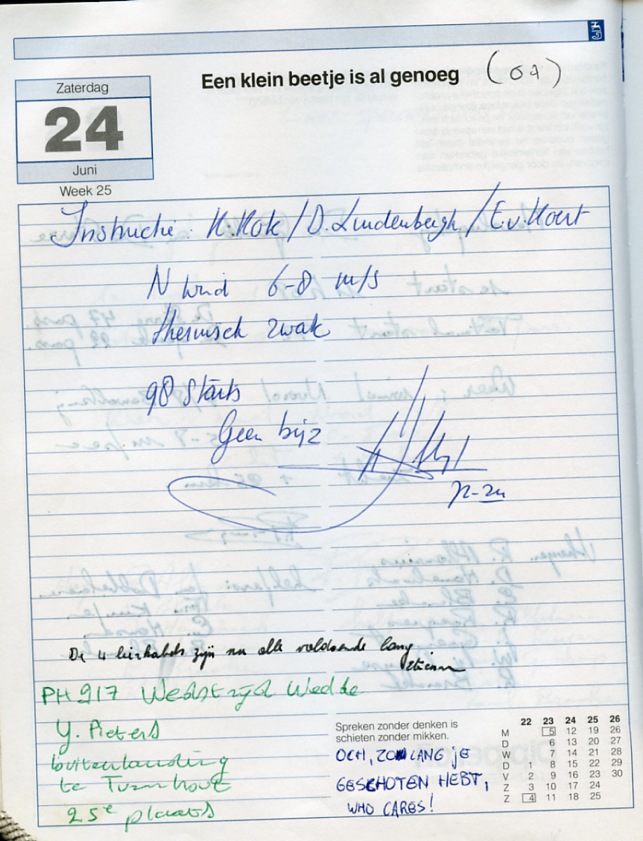 Een klein beetje is al genoeg
Zaterdag
24
Juni
Week 25
Instructie: H. Kok / D. Lindenbergh / E. v. Hoert
N Wind 6-8 m/s
thermisch zwak
98 Starts
Geen bijz
De 4 lierkabels zijn nu alle voldoende lang
PH 917 Wedstrijd Wedde
Y. Pieters
buitenlanding
te Turnhout
25e plaats
Spreken zonder denken is
schieten zonder mikken.
OCH, ZOLANG JE
GESCHOTEN HEBT,
WHO CARES!
22 23 24 25 26
M 5 12 19 26
D 6 13 20 27
W 7 14 21 28
D 1 8 15 22 29
V 2 9 16 23 30
Z 3 10 17 24
Z 4 11 18 25